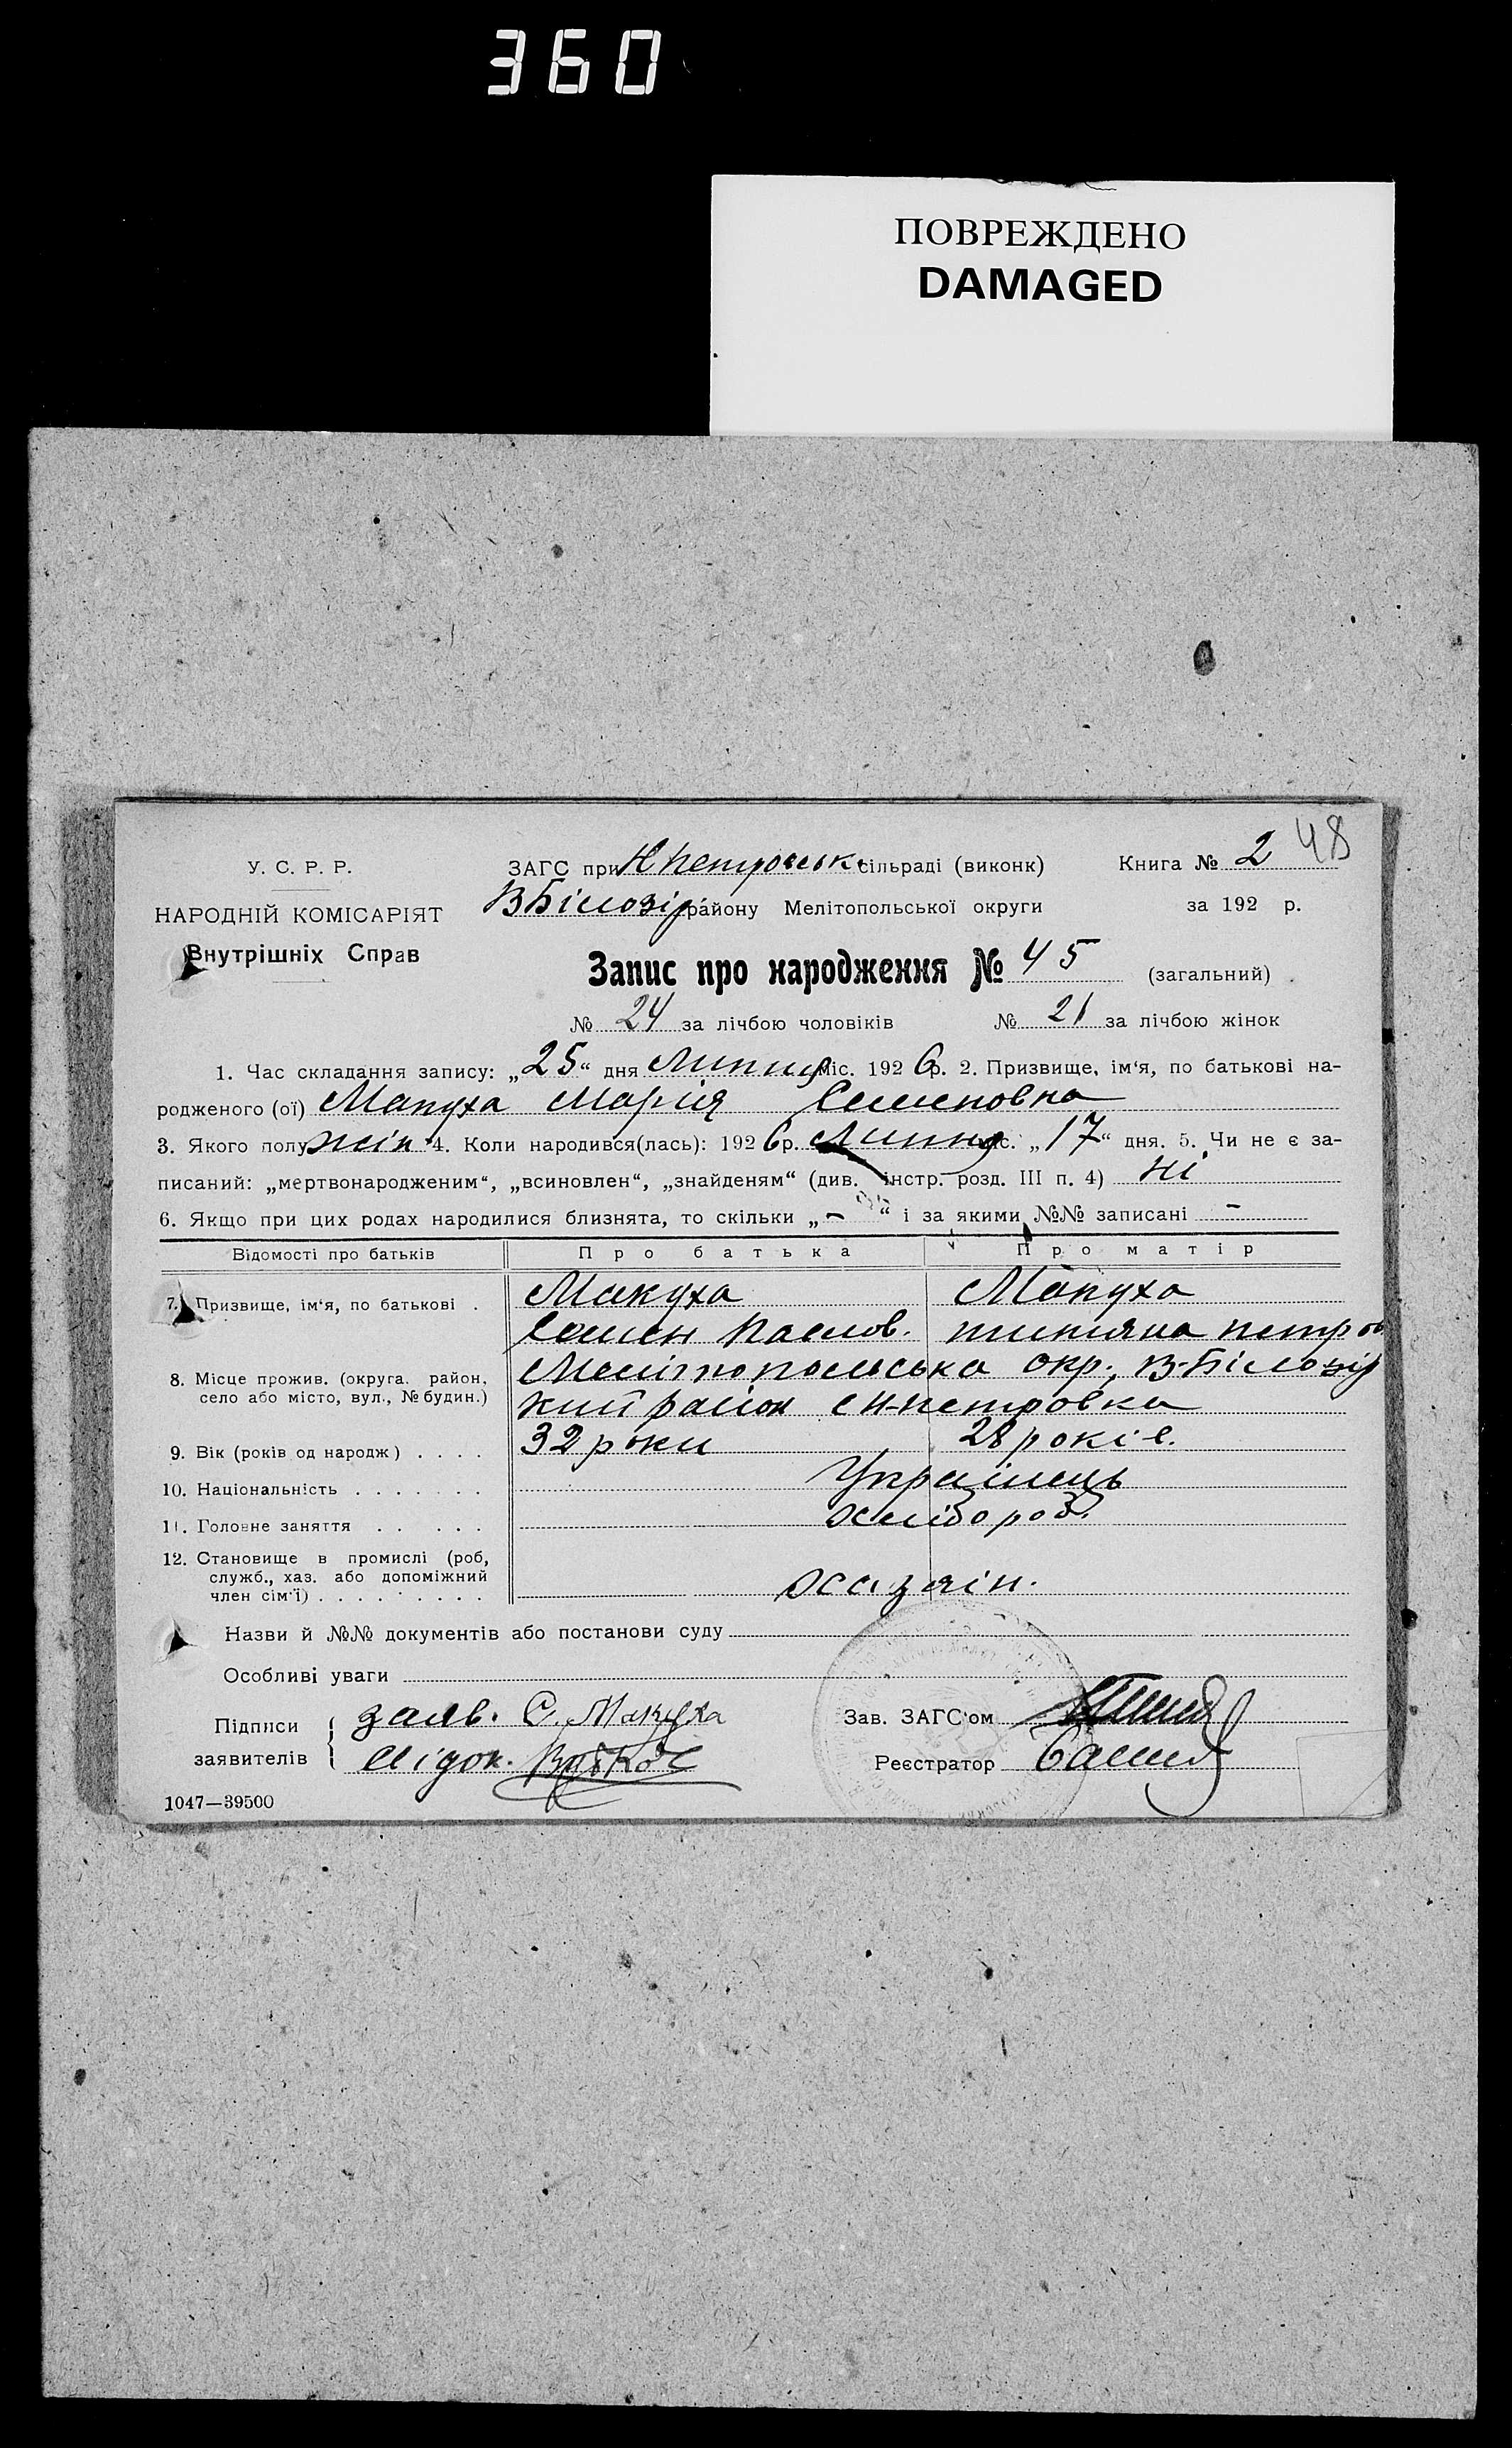 360
ПОВРЕЖДЕНО
DAMAGED
48
У. С. Р. Р.
НАРОДНІЙ КОМІСАРІЯТ
Внутрішніх Справ
ЗАГС при Н Петровськ. сільраді (виконк)
В Білозір району Мелітопольської округи
Книга № 2
за 192 р.
Запис про народження № 45 (загальний)
№ 24 за лічбою чоловіків № 21 за лічбою жінок
1. Час складання запису: „25“ дня Липня міс. 1926 р. 2. Призвище, ім‘я, по батькові на-
родженого (ої) Макуха Марія Семеновна
3. Якого полу жін 4. Коли народився(лась): 1926 р. Липня міс. „17“ дня. 5. Чи не є за-
писаний: „мертвонародженим“, „всиновлен“, „знайденям“ (див. інстр. розд. III п. 4) ні
6. Якщо при цих родах народилися близнята, то скільки „-“ і за якими №№ записані -
Відомості про батьків Про батька Про матір
7. Призвище, ім‘я, по батькові . Макуха Макуха
Семен Павлов. титяна петров
8. Місце прожив. (округа, район, село або місто, вул., № будин.) Мелітопольська окр., В-Білозір
кий район с Н-петровка
9. Вік (років од народж) . . . . 32 роки 28 років.
10. Національність . . . . . . . Українець
11. Головне заняття . . . . . . хлібороб.
12. Становище в промислі (роб,
служб., хаз. або допоміжний
член сім‘ї) . . . . . . . . . хазяін.
Назви й №№ документів або постанови суду
Особливі уваги
Підписи
заявителів
заяв. С. Макуха
свідок.
Зав. ЗАГС‘ом
Реєстратор
1047—39500